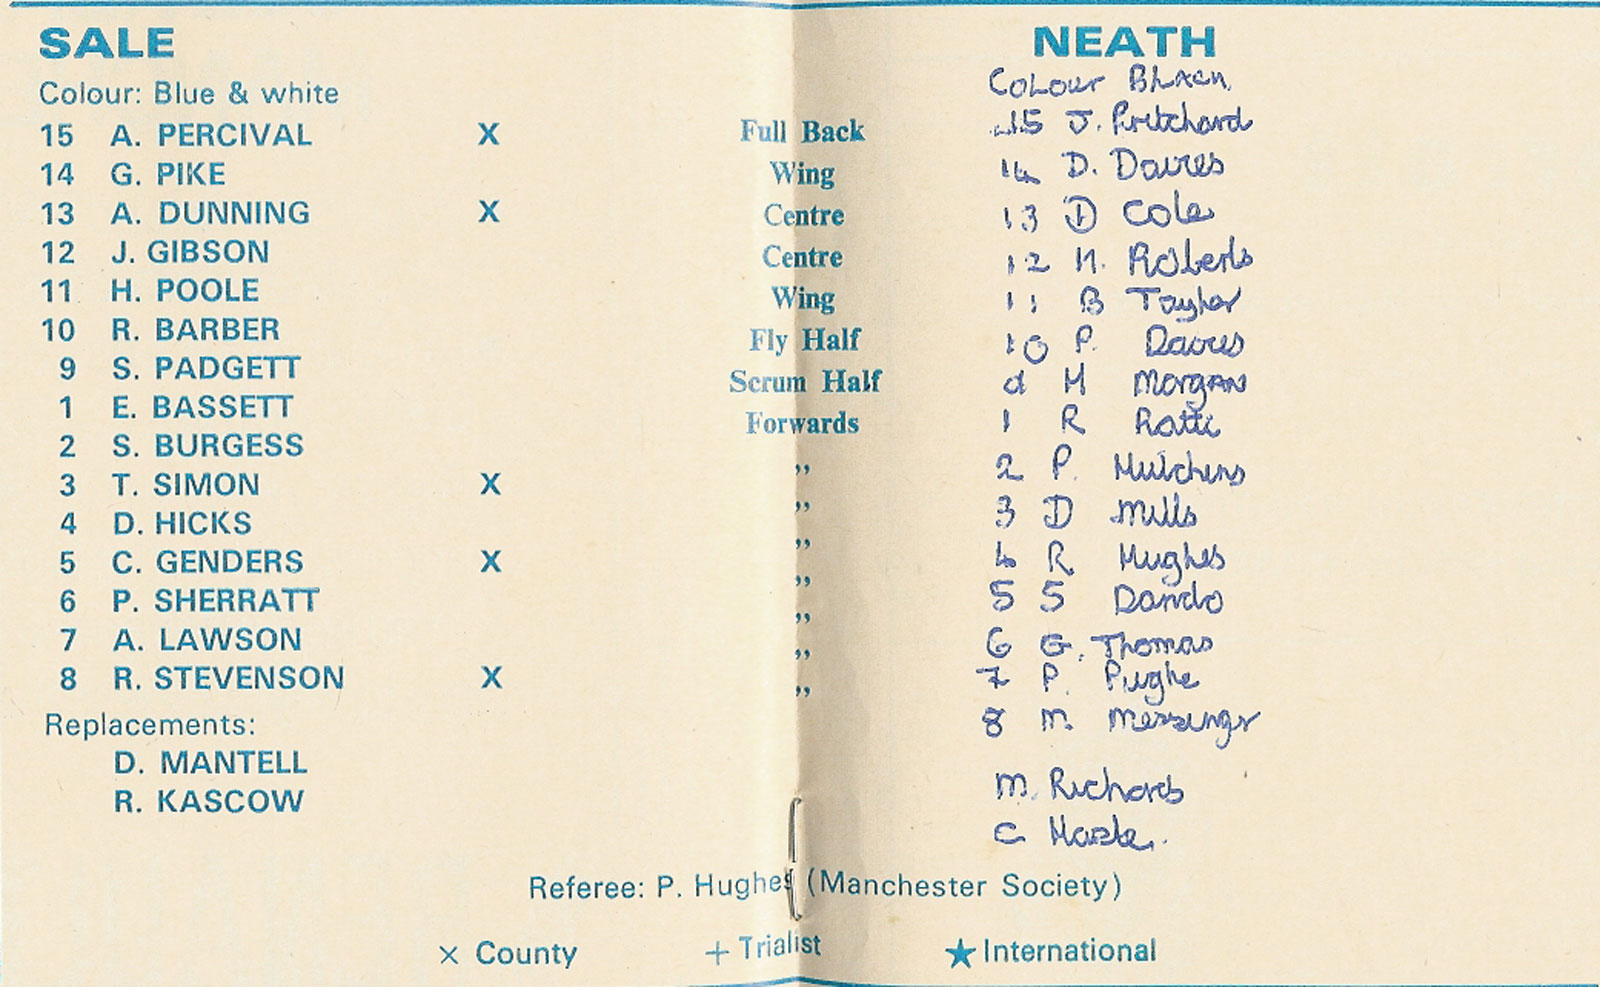 SALE
Colour: Blue & white
15 A. PERCIVAL X
14 G. PIKE
13 A. DUNNING X
12 J. GIBSON
11 H. POOLE
10 R. BARBER
9 S. PADGETT
1 E. BASSETT
2 S. BURGESS
3 T. SIMON X
4 D. HICKS
5 C. GENDERS X
6 P. SHERRATT
7 A. LAWSON
8 R. STEVENSON X
Replacements:
D. MANTELL
R. KASCOW
Full Back
Wing
Centre
Centre
Wing
Fly Half
Scrum Half
Forwards
,,
,,
,,
,,
,,
,,
,,
NEATH
Colour Black
15 J. Pritchard
14 D. Davies
13 D Cole
12 H. Roberts
11 B Taylor
10 P. Davies
9 M Morgan
1 R Ratti
2 P. Hutchins
3 D Mills
4 R Hughes
5 S Dando
6 G. Thomas
7 P. Pughe
8 M. Messinger
M. Richards
C
Referee: P. Hughes (Manchester Society)
× County + Trialist ★ International